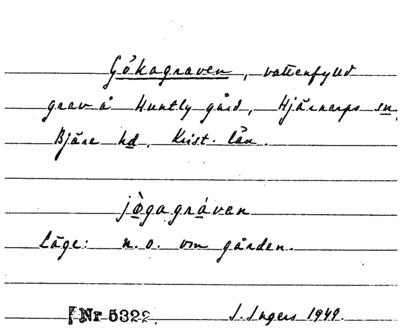 Gökagraven, vattenfylld
grav å Huntly gård, Hjärnarps sn,
Bjäre hd, Krist. län.
jògagráven
Läge: n.o. om gården.
Nr 5322. I. Ingers 1949.